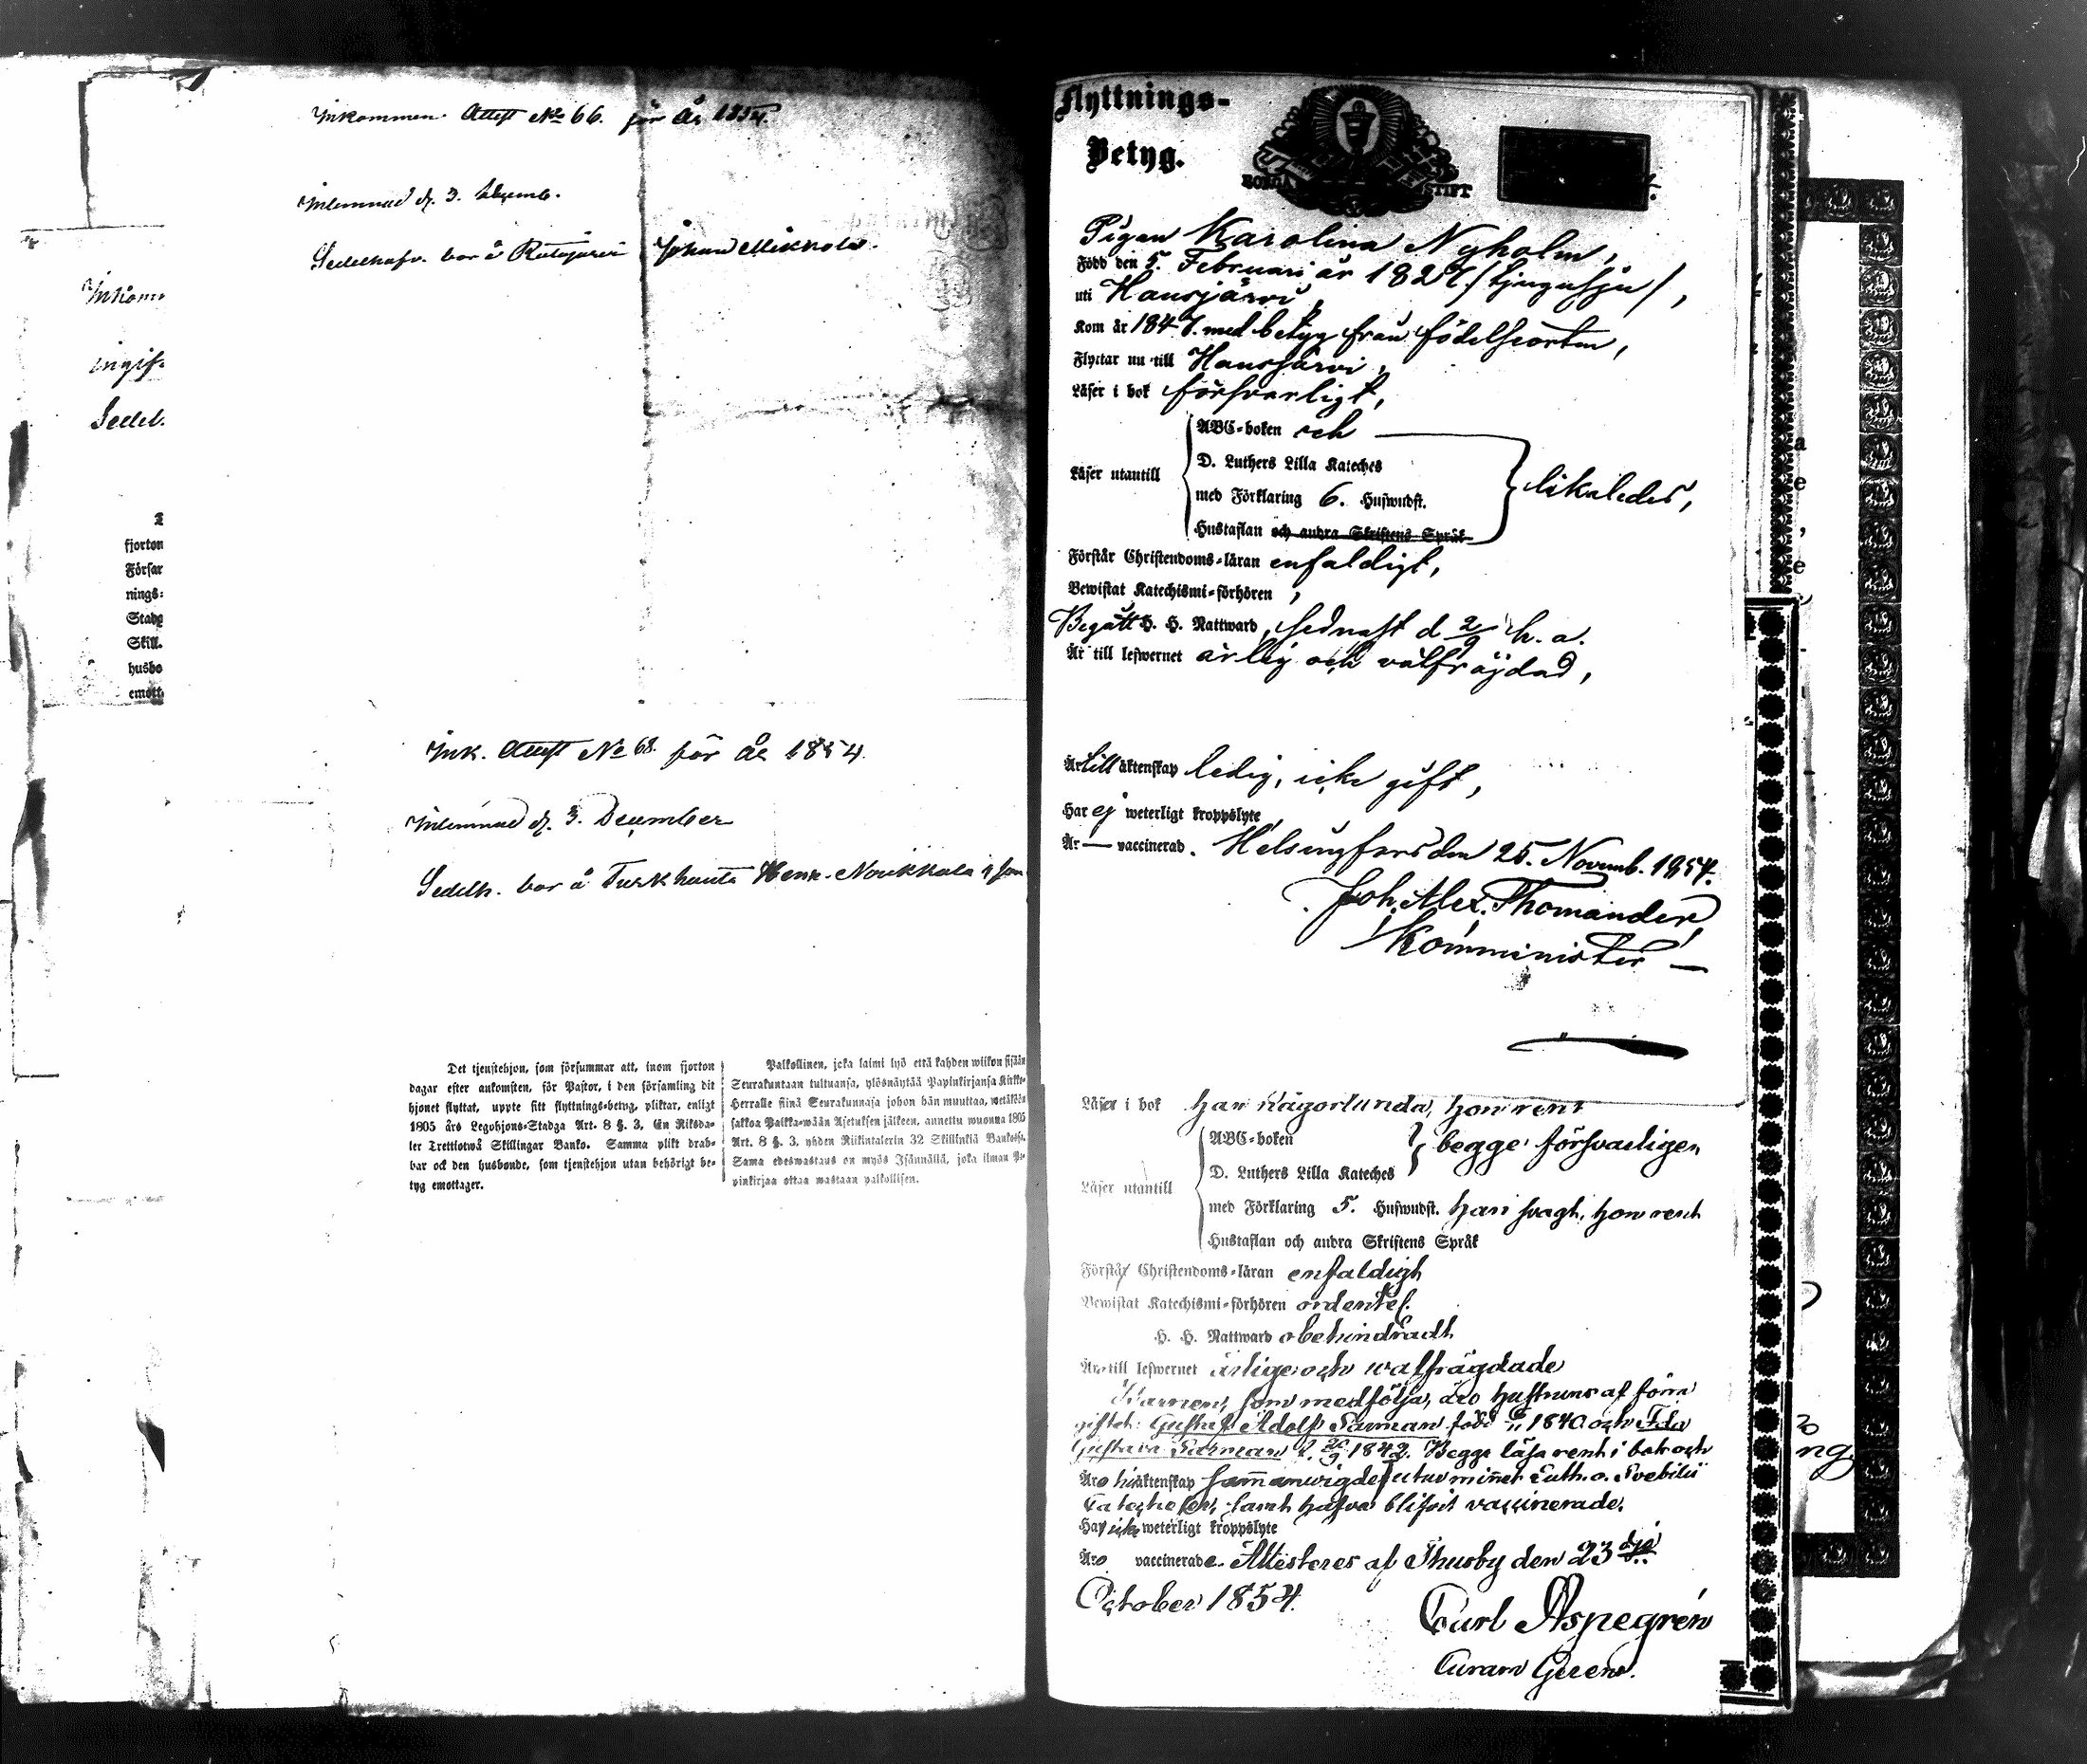 Inkommen. Attest No 66. för År 1854.
Inlemnad d. 3. Decemb.
Sedelhafv. bor å Rutajärvi Johan Mikkola.
Inkom
ingif
Sedel.
fjorton
Försar
nings-
Stadg
Skill.
husbo
emott
Ink. Attest No 68. för År 1854.
Inlemnad d. 3. December
Sedelh. bor å Turkhauta Henr. Noukkala
Det tjenstehjon, som försummar att, inom fjorton
dagar efter ankomsten, för Pastor, i den församling dit
hjonet flyttat, uppte sitt flyttnings-betyg, pliktar, enligt
1805 års Legohjons-Stadga Art. 8 §. 3, En Riksda-
ler Trettiotwå Skillingar Banko. Samma plikt drab-
bar ock den husbonde, som tjenstehjon utan behörigt be-
tyg emottager.
Palkollinen, joka laimi lyö että kahden wiikon sisään
Seurakuntaan tultuansa, ylösnäytää Papinkirjansa Kirkko-
Herralle siinä Seurakunnasa johon hän muuttaa, wetäköön
sakkoa Palkka-wään Asetuksen jälkeen, annettu wuonna 1805
Art. 8 §. 3, yhden Riikintalerin 32 Skillinkiä Bankossa.
Sama edeswastaus on myös Isännällä, joka ilman Pa-
pinkirjaa ottaa wastaan palkollisen.
Flyttnings-
Betyg.
BORGÅ STIFT
Pigan Karolina Nyholm,
Född den 5. Februari år 1827 /tjugusju/,
uti Hausjärvi,
Kom år 1847. med betyg från födelseorten,
Flyttar nu till Hausjärvi,
Läser i bok försvarligt,
ABC-boken och
D. Luthers Lilla Kateches
Läser utantill
med Förklaring 6. Hufwudst.
likaledes,
Hustaflan och andra Skriftens Språk
Förstår Christendoms-läran enfaldigt,
Bewistat Katechismi-förhören,
Begått H. H. Nattward, sednast d 2/9 h. a.
Är till lefwernet ärlig och välfräjdad,
Är till äktenskap ledig, icke gift,
Har ej weterligt kroppslyte,
Är — vaccinerad. Helsingfors den 25. Novemb. 1854.
Joh. Alex. Thomander,
Komminister
Läser i bok han någorlunda, hon rent
ABC-boken
D. Luthers Lilla Kateches
begge försvarligen
Läser utantill
med Förklaring 5. Hufwudst. han svagt, hon rent
Hustaflan och andra Skriftens Språk
Förstår Christendoms-läran enfaldigt
Bewistat Katechismi-förhören ordentel.
H. H. Nattward obehindradt
Äro till lefwernet ärlige och walfrägdade
Barnen, som medfölja, äro hustruns af förra
giftet: Gustaf Adolf Sarman född 1840 och Ida
Gustava Sarman f. 1843. Begge läsa rent i bok och
Äro hiäktenskap sammanwigde utur minnet Luth. o. Svebilii
Cateches, samt hafva blifvit vaccinerade.
Har icke weterligt kroppslyte
Äro vaccinerade. Attesteres af Thusby den 23dje
October 1854.
Carl Aspegrén
Curam Gerens.